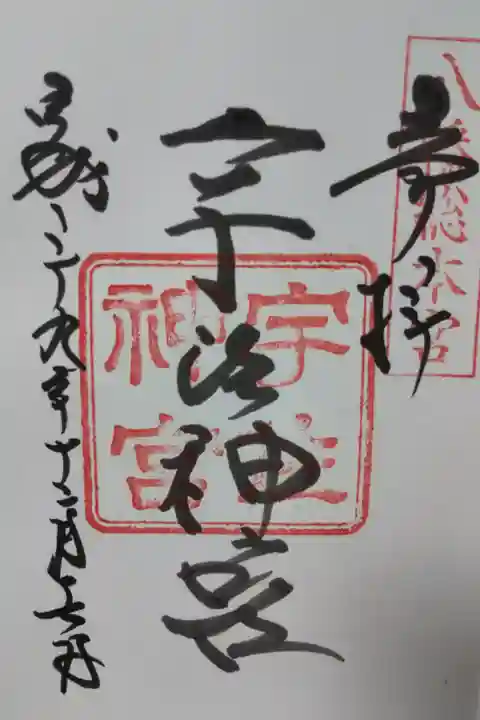 八幡総本宮
奉拝
宇佐神宮
宇佐
神宮
平成二十九年十二月